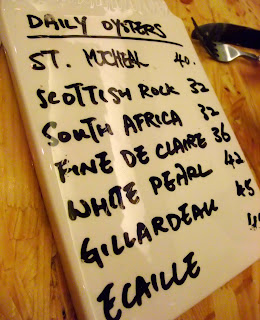 DAILY OYSTERS
ST. MICHEAL 40.
SCOTTISH ROCK 32
SOUTH AFRICA 32
FINE DE CLAIRE 36
WHITE PEARL 42
GILLARDEAU 45
ECAILLE